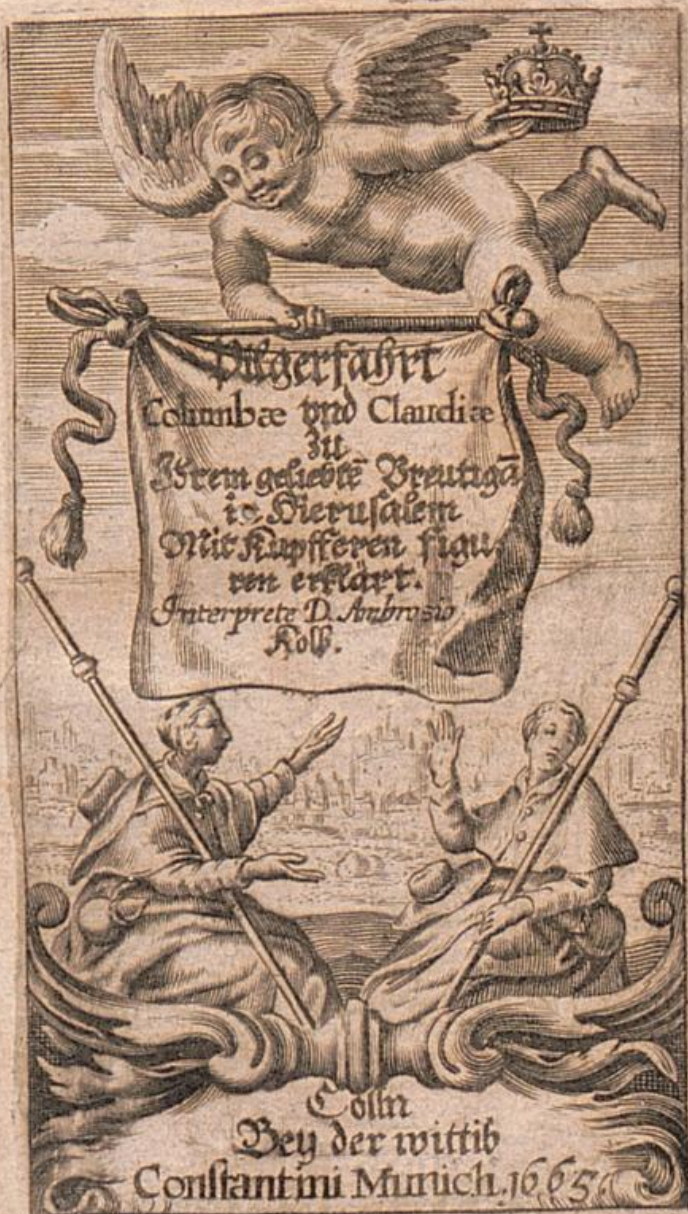 Pilgerfahrt
Columbæ vnd Claudiæ
Zu
Ihrem geliebtē Breutigā
in Hierusalem
Mit Kupfferen figu
ren erklärt.
Interprete D. Ambrosio
Kolb.
Cölln
Bey der wittib
Constantini Munich. 1665.